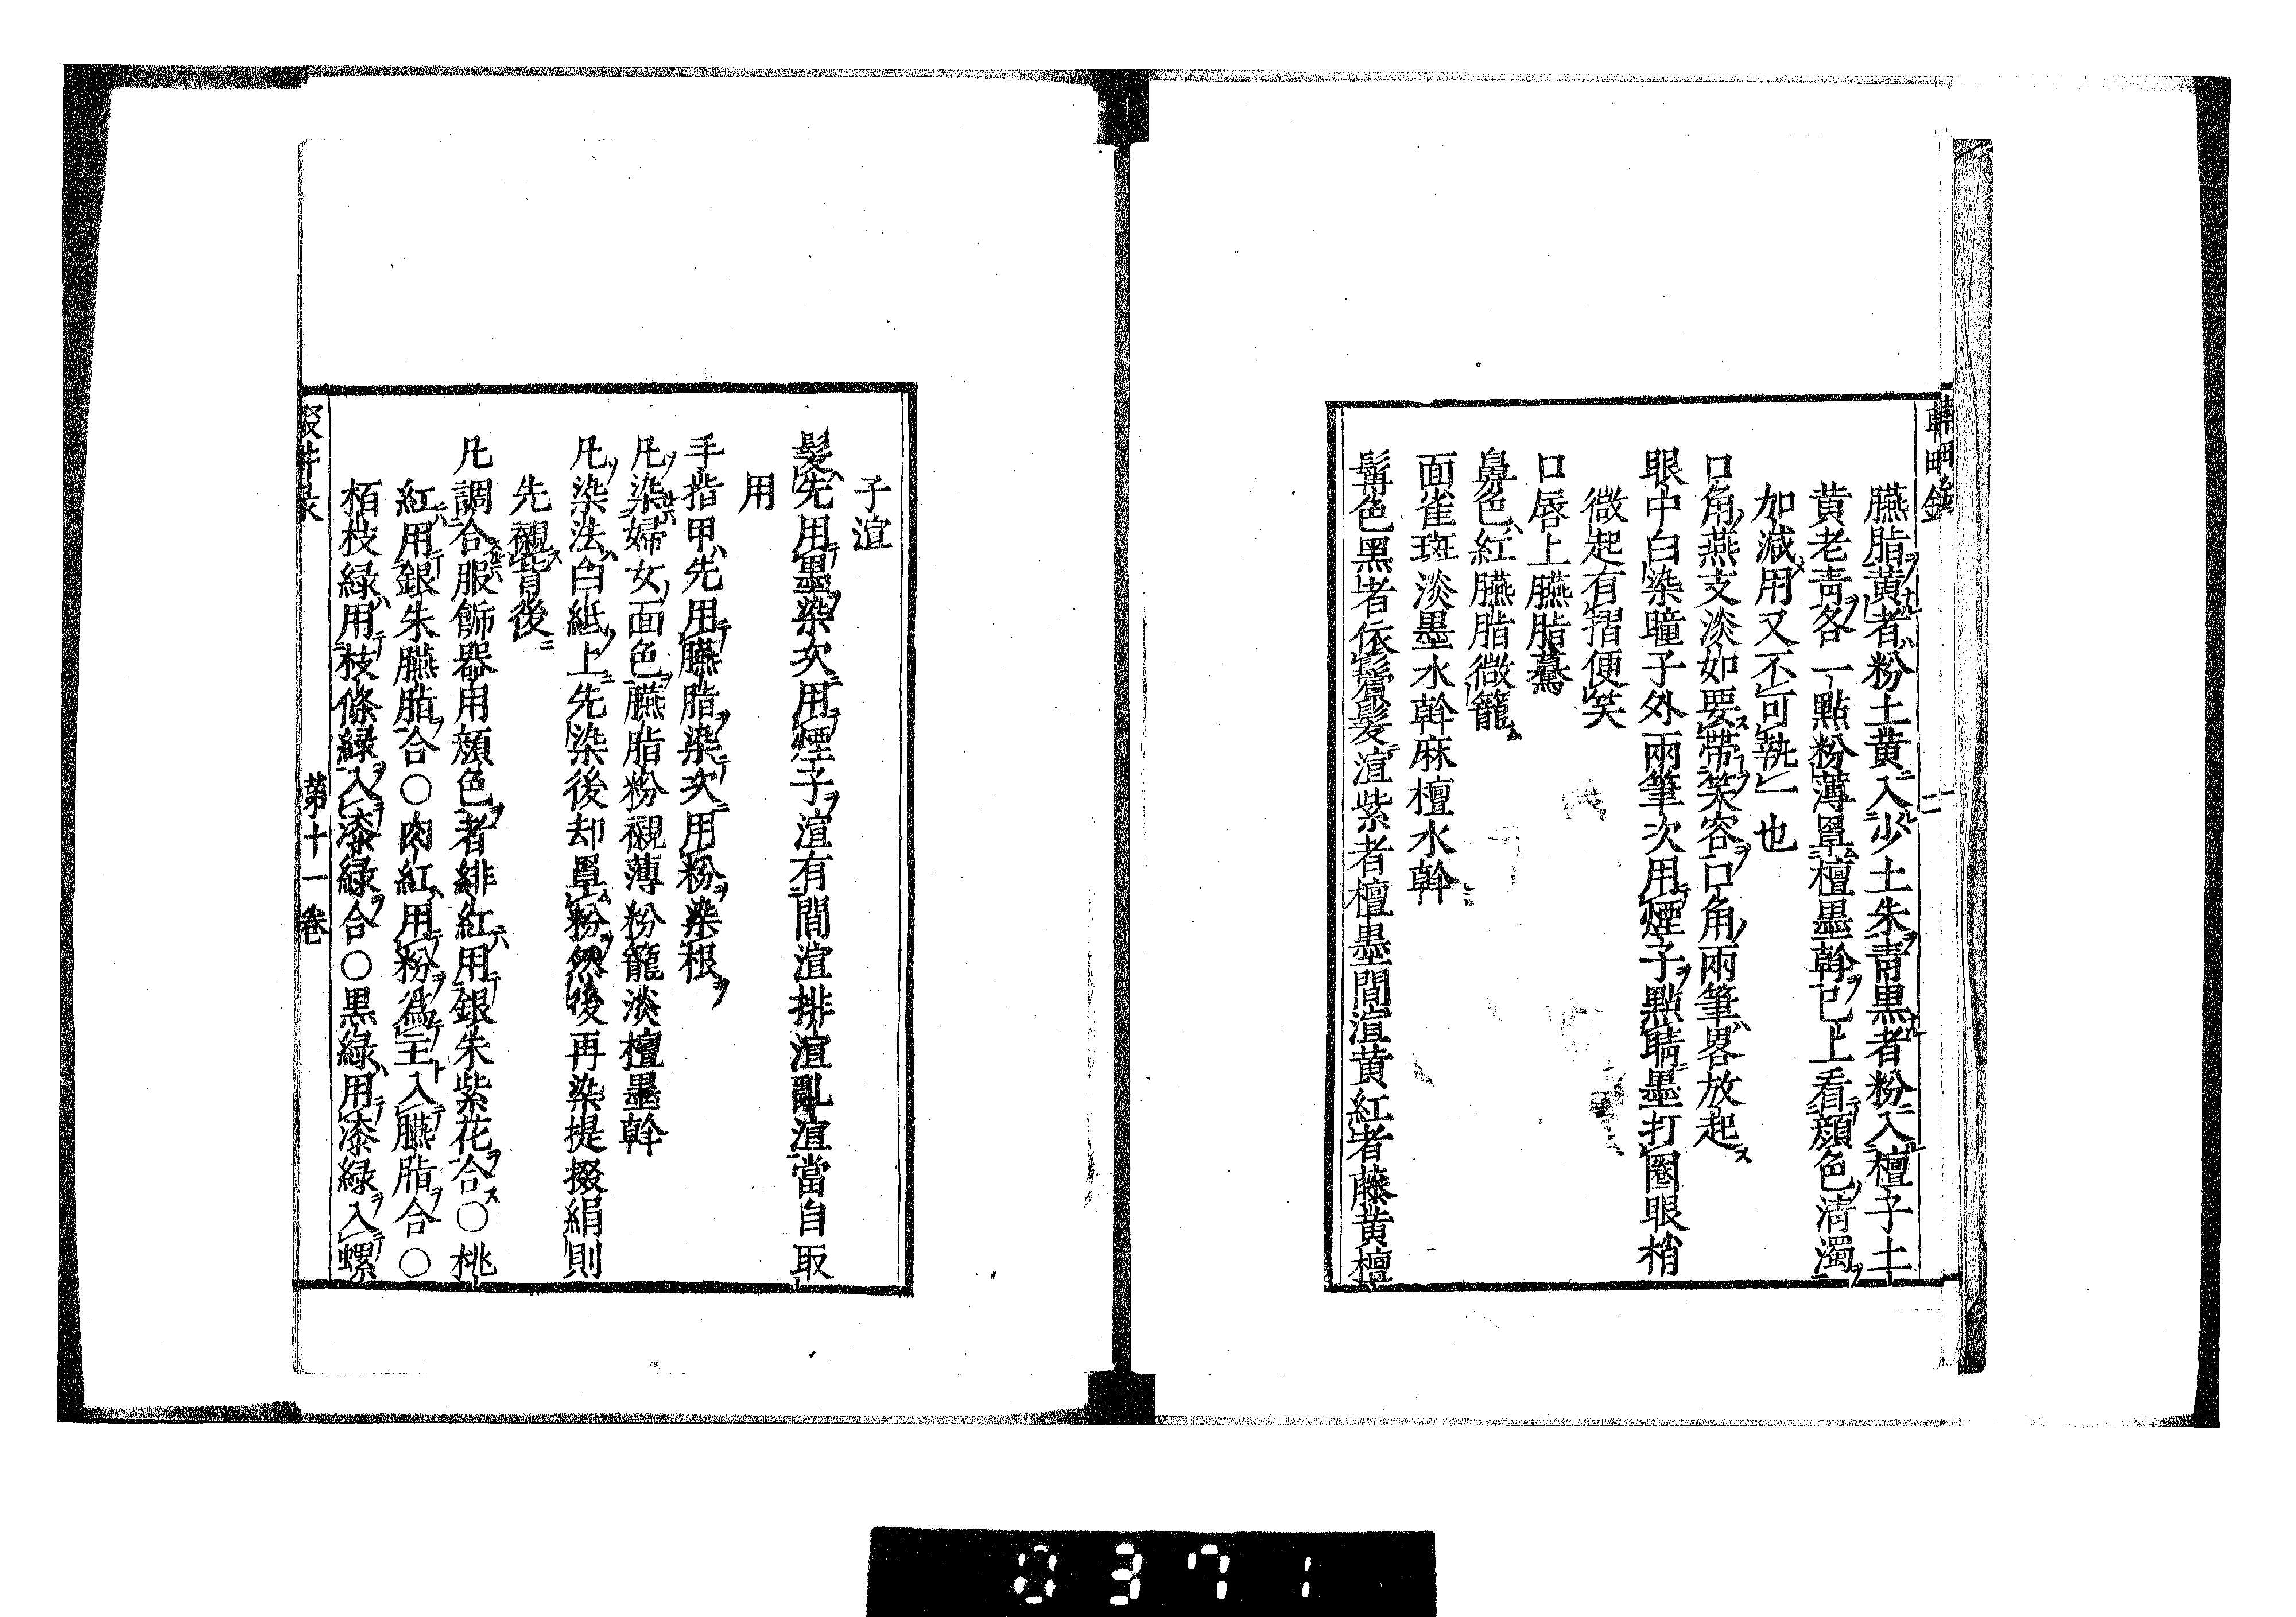 臙脂黄者粉土黄入少土朱青黒者粉入檀子土
黄老青各一點粉薄罩檀墨斡已上看顔色清濁
加减用又不可執一也
口角燕支淡如要帶笑容口角兩筆畧放起
眼中白染瞳子外兩筆次用煙子點睛墨打圏眼梢
微起有摺便笑
口唇上臙脂驀
鼻色紅臙脂微籠
面雀斑淡墨水斡麻檀水斡
髯色黑者依鬢髪渲紫者檀墨間渲黄紅者藤黄檀
子渲
髪先用墨染次用煙子渲有間渲排渲亂渲當自取
用
手指甲先用臙脂染次用粉染根
凢染婦女面色臙脂粉襯薄粉籠淡檀墨斡
凢染法白紙上先染後却罩粉然後再染提掇絹則
先襯背後
凢調合服飾器用顔色者緋紅用銀朱紫花合〇桃
紅用銀朱臙脂合〇肉紅用粉爲主入臙脂合〇
栢枝緑用枝條緑入漆緑合〇黒緑用漆緑入螺
第十一卷
0371